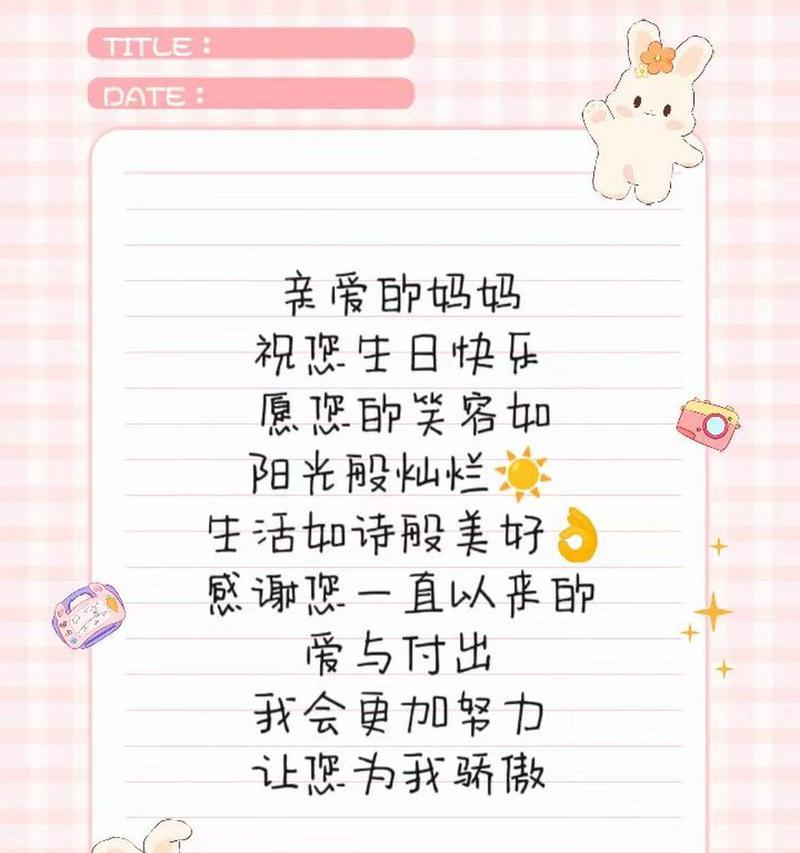 TITLE：
DATE：
亲爱的妈妈
祝您生日快乐
愿您的笑容如
阳光般灿烂☀️
生活如诗般美好👌
感谢您一直以来的
爱与付出
我会更加努力
让您为我骄傲